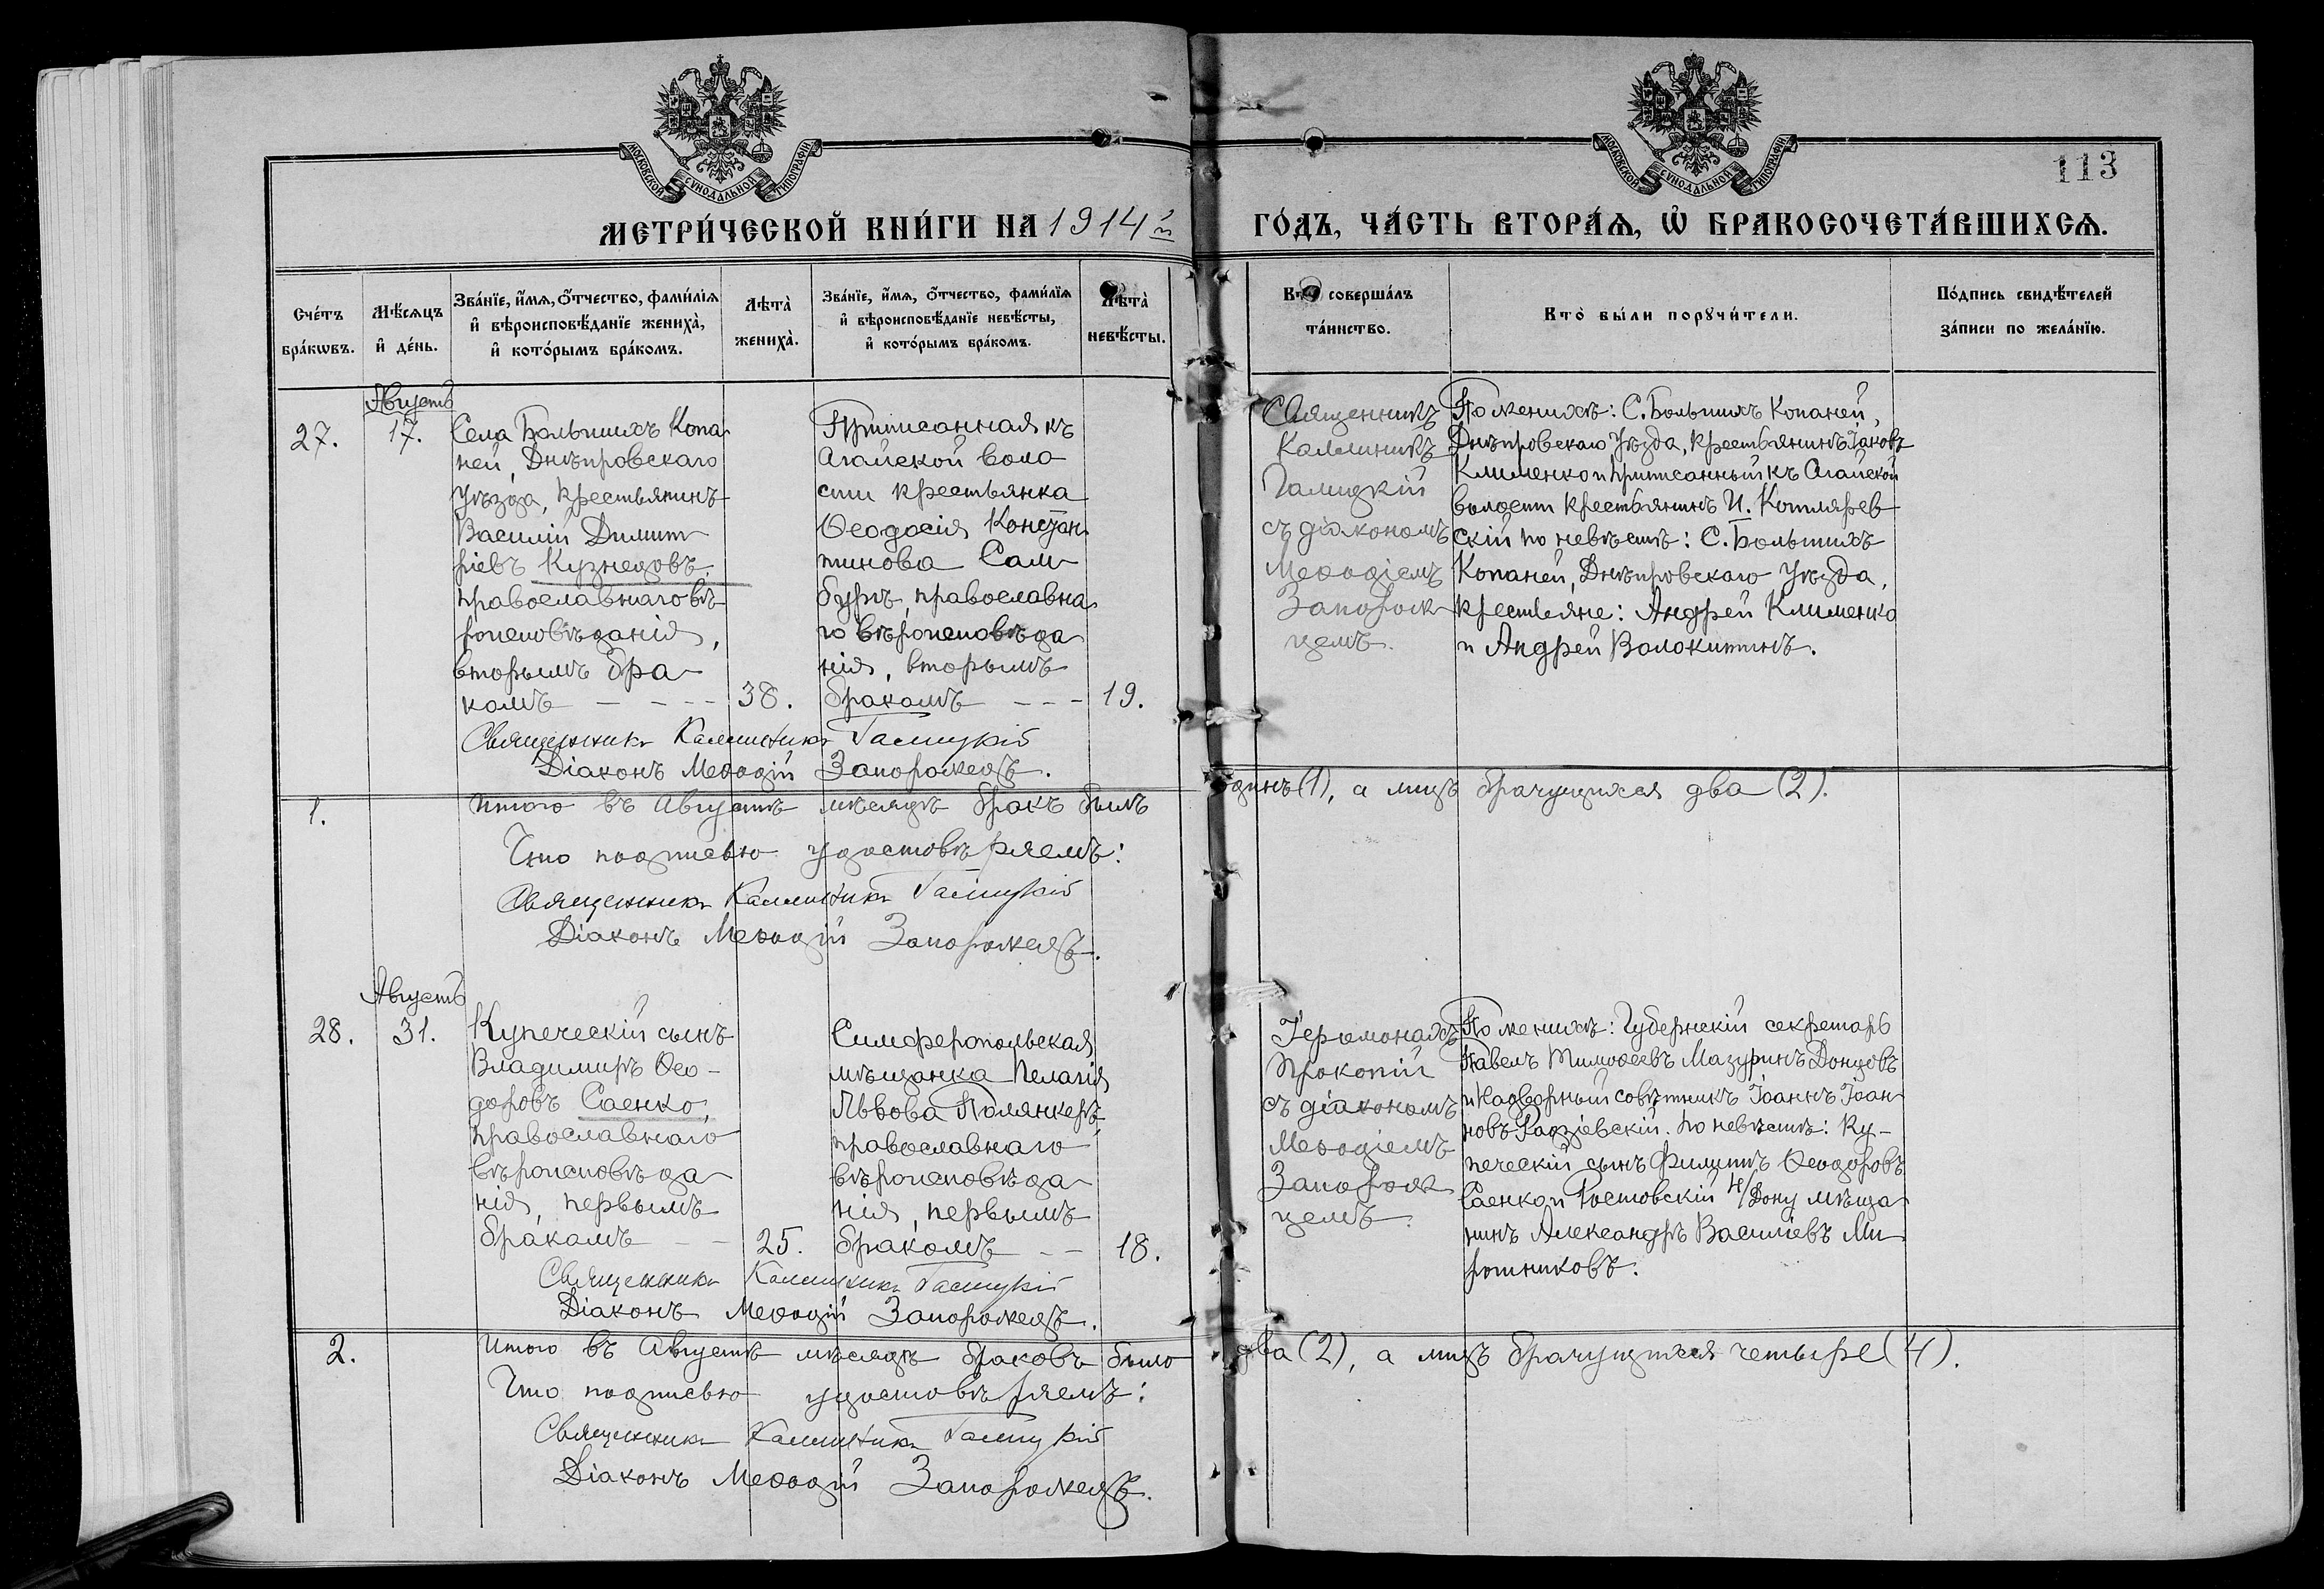 МОСКОВСКОЙ СѴНОДАЛЬНОЙ ТИПОГРАФІИ
МОСКОВСКОЙ СѴНОДАЛЬНОЙ ТИПОГРАФІИ
113
МЕТРИ́ЧЕСКОЙ КНИ́ГИ НА 1914й ГО́ДЪ, ЧА́СТЬ ВТОРА́Ѧ, Ѡ҆ БРАКОСОЧЕТА́ВШИХСѦ.
Сче́тъ бра́кѡвъ.
Мѣ́сѧцъ и҆ де́нь.
Зва́нїе, и҆́мѧ, ѻ҆́тчество, фами́лїѧ и҆ вѣроисповѣ́данїе жениха̀, и҆ кото́рымъ бра́комъ.
Лѣта̀ жениха̀.
Зва́нїе, и҆́мѧ, ѻ҆́тчество, фами́лїѧ и҆ вѣроисповѣ́данїе невѣ́сты, и҆ кото́рымъ бра́комъ.
Лѣта̀ невѣ́сты.
Кто̀ соверша́лъ та́инство.
Кто̀ бы́ли порꙋчи́тели.
По́дпись свидѣ́телей за́писи по жела́нїю.
27.
Августъ
17.
Села Большихъ Копа
ней, Днѣпровскаго
уѣзда, крестьянинъ
Василій Димит
ріевъ Кузнецовъ,
православнаго вѣ
роисповѣданія,
вторымъ бра
комъ - - - -
38.
Приписанная къ
Агайской воло
сти крестьянка
Ѳеодосія Констан
тинова Сам
буръ, православна
го вѣроисповѣда
нія, вторымъ
бракомъ - - -
19.
Священникъ
Каллиникъ
Галицкій
съ діакономъ
Меѳодіемъ
Запорож
цемъ.
По женихѣ: С. Большихъ Копаней,
Днѣпровскаго уѣзда, крестьянинъ Іаковъ
Клименко и приписанный къ Агайской
волости крестьянинъ И. Котлярев
скій по невѣстѣ: С. Большихъ
Копаней, Днѣпровскаго уѣзда,
крестьяне: Андрей Клименко
и Андрей Волокитинъ.
Священникъ Каллиникъ Галицкій
Діаконъ Меѳодій Запорожецъ.
1.
Итого въ Августѣ мѣсяцѣ бракъ былъ одинъ (1), а лицъ брачущихся два (2).
Что подписью удостовѣряемъ:
Священникъ Каллиникъ Галицкій
Діаконъ Меѳодій Запорожецъ.
28.
Августъ
31.
Купеческій сынъ
Владимиръ Ѳео-
доровъ Саенко,
православнаго
вѣроисповѣда
нія, первымъ
бракомъ - -
25.
Симферопольская
мѣщанка Пелагія
Львова Полянкеръ,
православнаго
вѣроисповѣда
нія, первымъ
бракомъ - -
18.
Іеромонахъ
Прокопій
съ діакономъ
Меѳодіемъ
Запорож
цемъ.
По женихѣ: Губернскій секретарь
Павелъ Тимоѳеевъ Мазуринъ Донцовъ
и Надворный совѣтникъ Іоаннъ Іоан
новъ Радзіевскій. По невѣстѣ: Ку-
печескій сынъ Филиппъ Ѳеодоровъ
Саенко и Ростовскій н/Дону мѣща
нинъ Александръ Василіевъ Ми
рошниковъ.
Священникъ Каллиникъ Галицкій
Діаконъ Меѳодій Запорожецъ.
2.
Итого въ Августѣ мѣсяцѣ браковъ было два (2), а лицъ брачущихся четыре (4).
Что подписью удостовѣряемъ:
Священникъ Каллиникъ Галицкій
Діаконъ Меѳодій Запорожецъ.